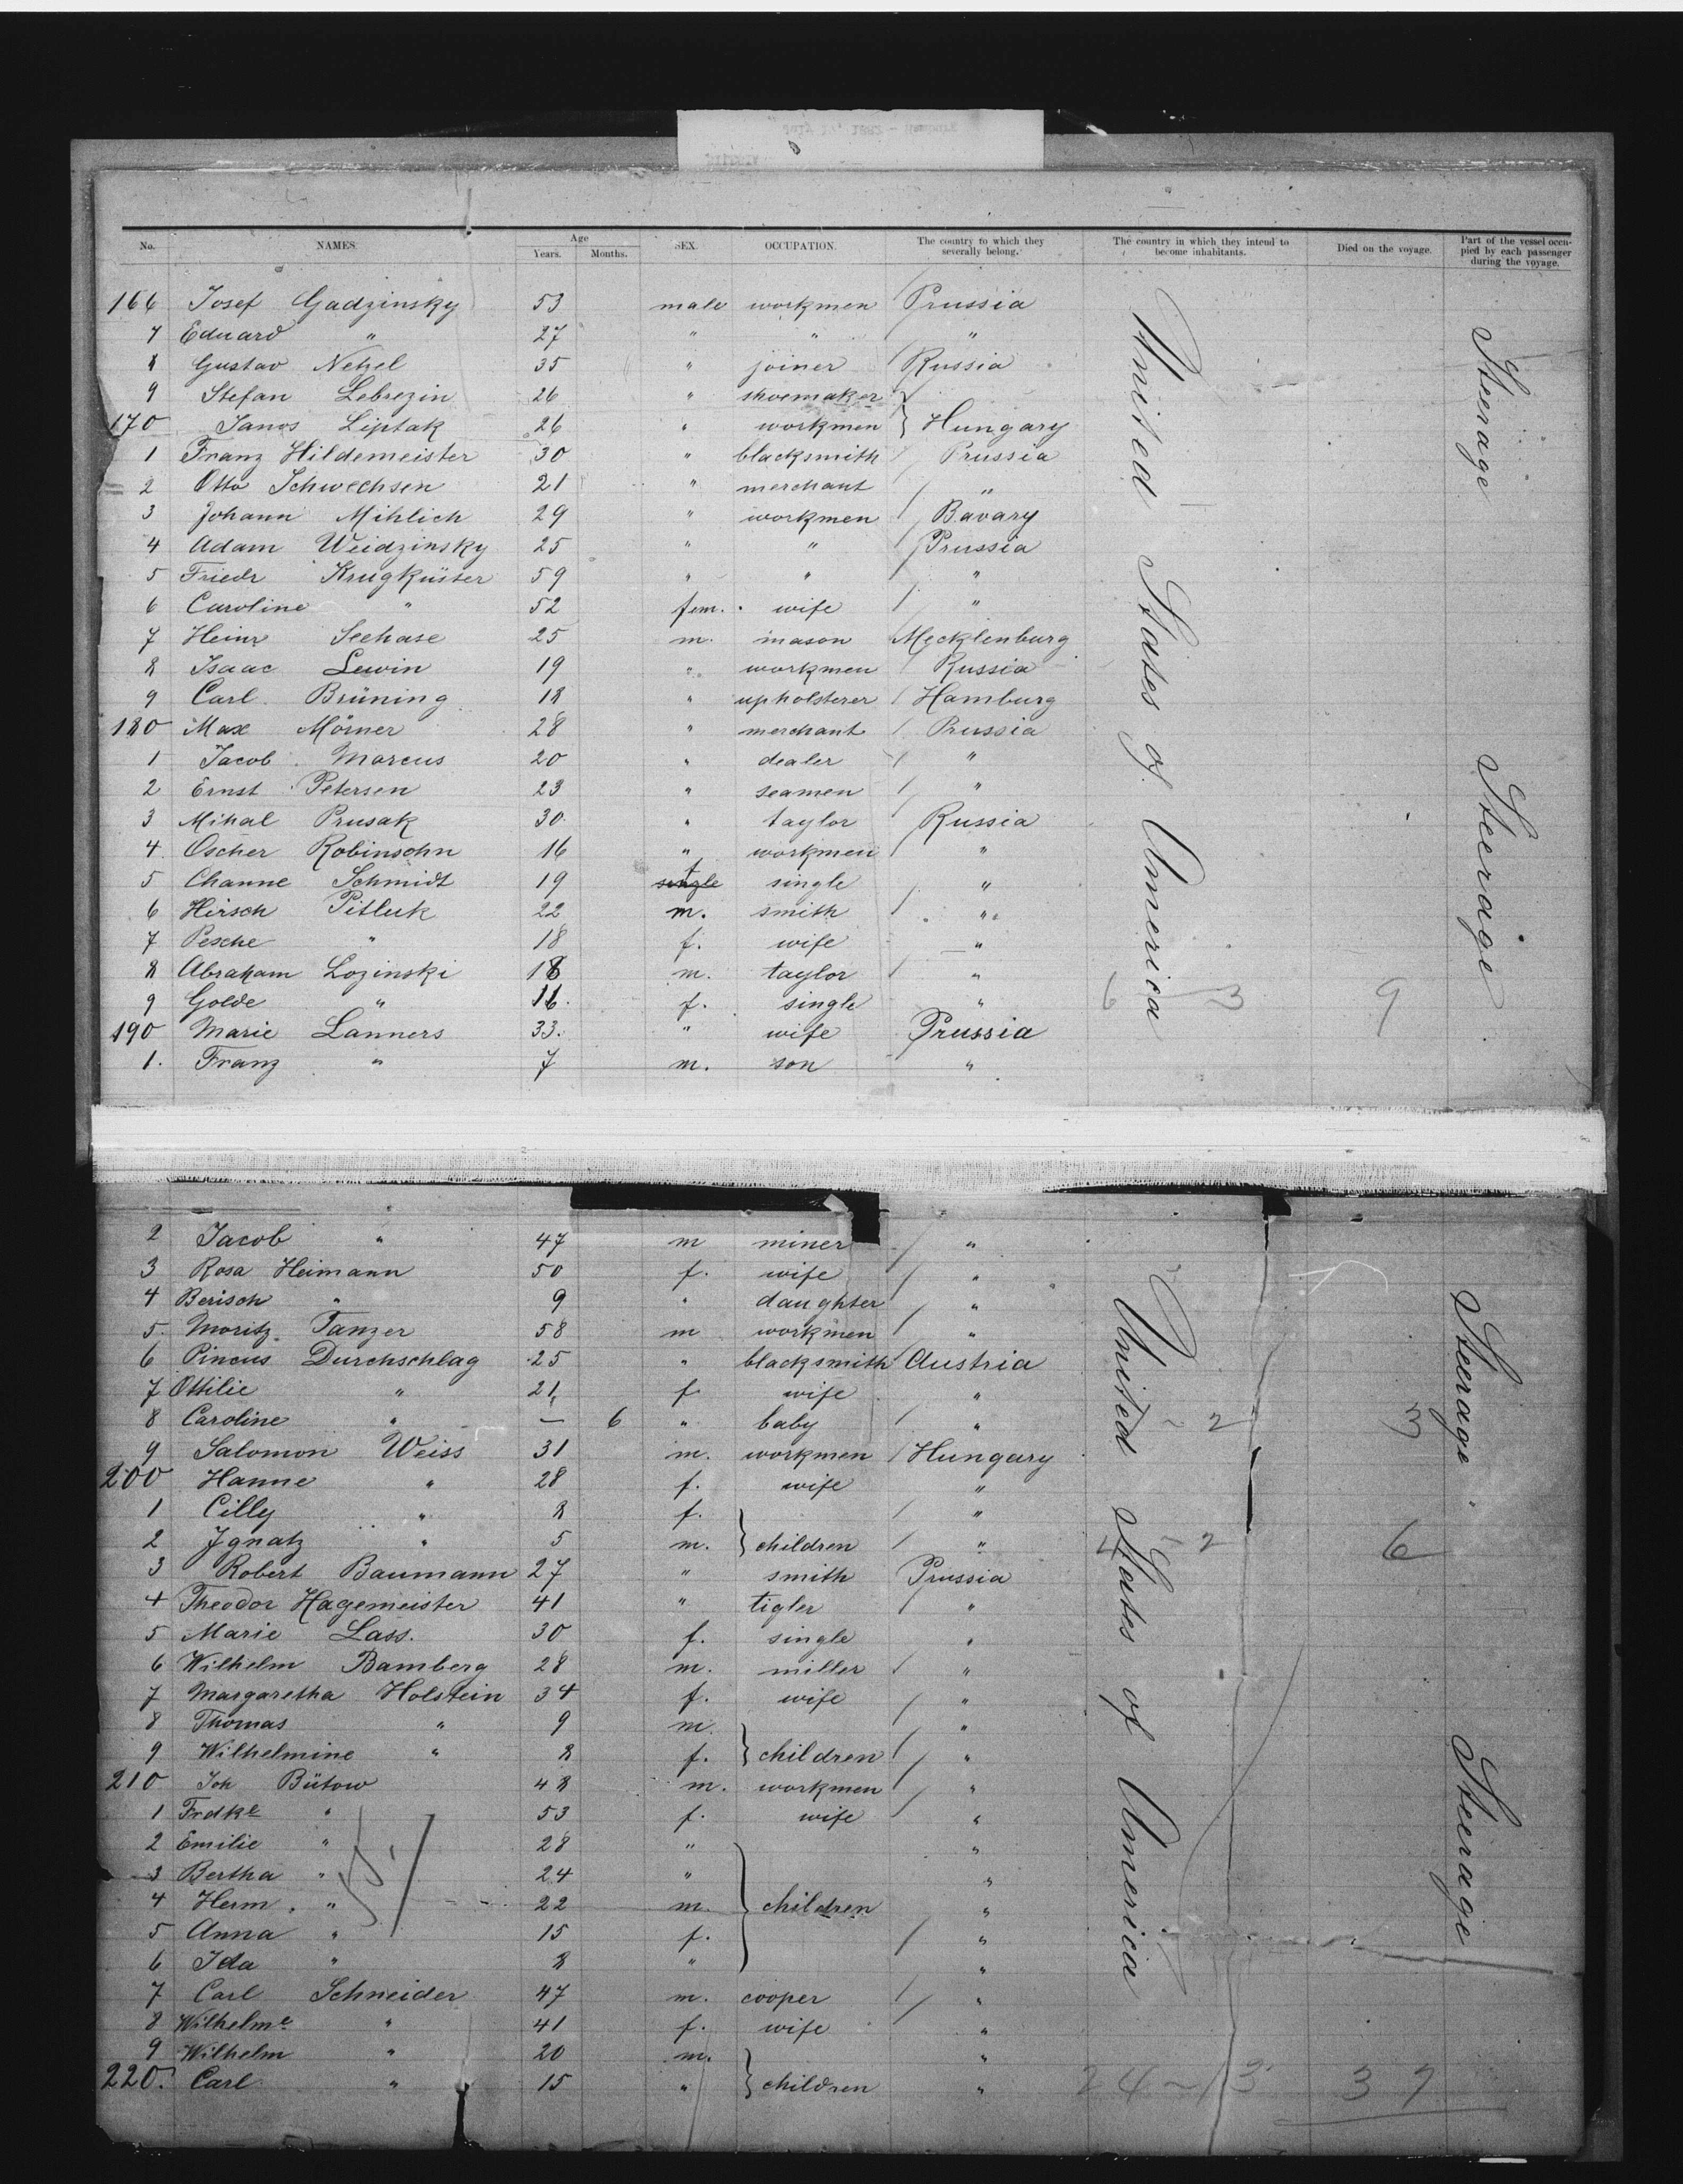 No. NAMES. Age Years. Months. SEX. OCCUPATION. The country to which they severally belong. The country in which they intend to become inhabitants. Died on the voyage. Part of the vessel occupied by each passenger during the voyage.
166 Josef Gadzinsky 53 male workmen Prussia
7 Eduard " 27 " " "
8 Gustav Netzel 35 " joiner Russia
9 Stefan Lebrezin 26 " shoemaker }
170 Janos Liptak 26 " workmen } Hungary
1 Franz Hildemeister 30 " blacksmith Prussia
2 Otto Schwechsen 21 " merchant "
3 Johann Mihlich 29 " workmen Bavary
4 Adam Weidzinsky 25 " " Prussia
5 Friedr Krugküster 59 " " "
6 Caroline " 52 fem. wife "
7 Heinr Seehase 25 m. mason Mecklenburg
8 Isaac Lewin 19 " workmen Russia
9 Carl Brüning 18 " upholsterer Hamburg
180 Max Mörner 28 " merchant Prussia
1 Jacob Marcus 20 " dealer "
2 Ernst Petersen 23 " seamen "
3 Mihal Prusak 30 " taylor Russia
4 Oscher Robinsohn 16 " workmen "
5 Channe Schmidt 19 f single "
6 Hirsch Pitluk 22 m. smith "
7 Pesche " 18 f. wife "
8 Abraham Lozinski 18 m. taylor "
9 Golde " 16. f. single " 6 3 9
190 Marie Lanners 33. " wife Prussia
1. Franz " 7 m. son "
United States of America
Steerage
Steerage
2 Jacob " 47 m miner "
3 Rosa Heimann 50 f. wife "
4 Berisch " 9 " daughter "
5. Moritz Tanzer 58 m workmen "
6 Pincus Durchschlag 25 " blacksmith Austria
7 Ottilie " 21 f wife "
8 Caroline " — 6 " baby " ~ 2 3
9 Salomon Weiss 31 m. workmen Hungary
200 Hanne " 28 f. wife "
1 Cilly " 8 f. "
2 Ignatz " 5 m. } children " 4 ~ 2 6
3 Robert Baumann 27 " smith Prussia
4 Theodor Hagemeister 41 " tigler "
5 Marie Lass. 30 f. single "
6 Wilhelm Bamberg 28 m. miller "
7 Margaretha Holstein 34 f. wife "
8 Thomas " 9 m. "
9 Wilhelmine " 8 f. } children "
210 Joh Bütow 48 m. workmen "
1 Frdke " 53 f. wife "
2 Emilie " 28 " "
3 Bertha " 24 " "
4 Herm. " 22 m. } children "
5 Anna " 15 f. "
6 Ida " 8 " "
7 Carl Schneider 47 m. cooper "
8 Wilhelme " 41 f. wife "
9 Wilhelm " 20 m. "
220. Carl " 15 " } children " 24 ~ 13 37
United States of America
Steerage
Steerage